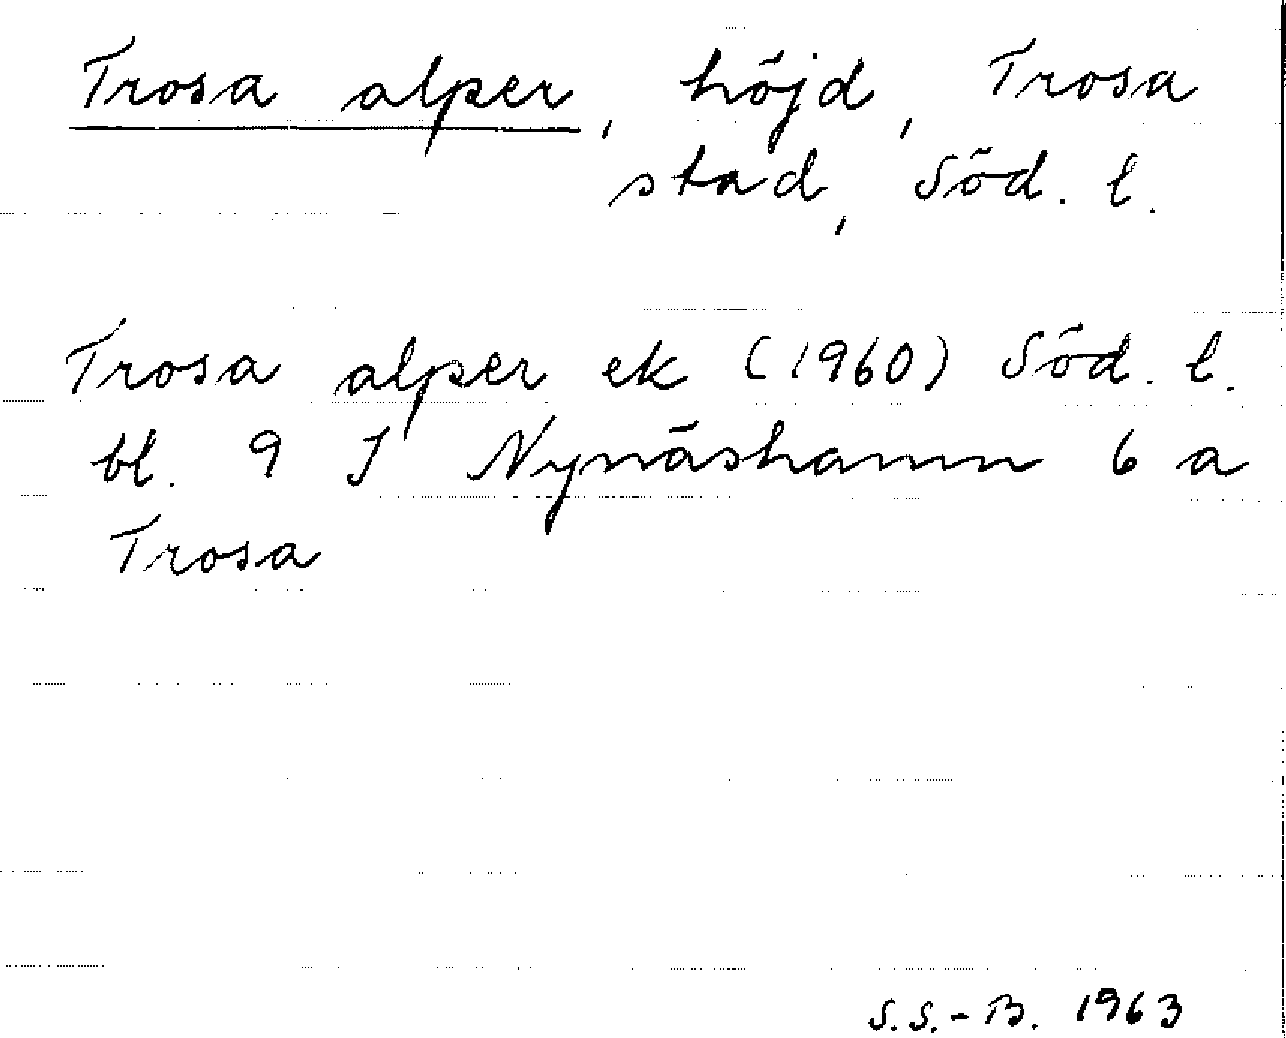 Trosa alper, höjd, Trosa
stad, Söd. l.
Trosa alper ek (1960) Söd. l.
bl. 9 I Nynäshamn 6 a
Trosa
S.S.-B. 1963